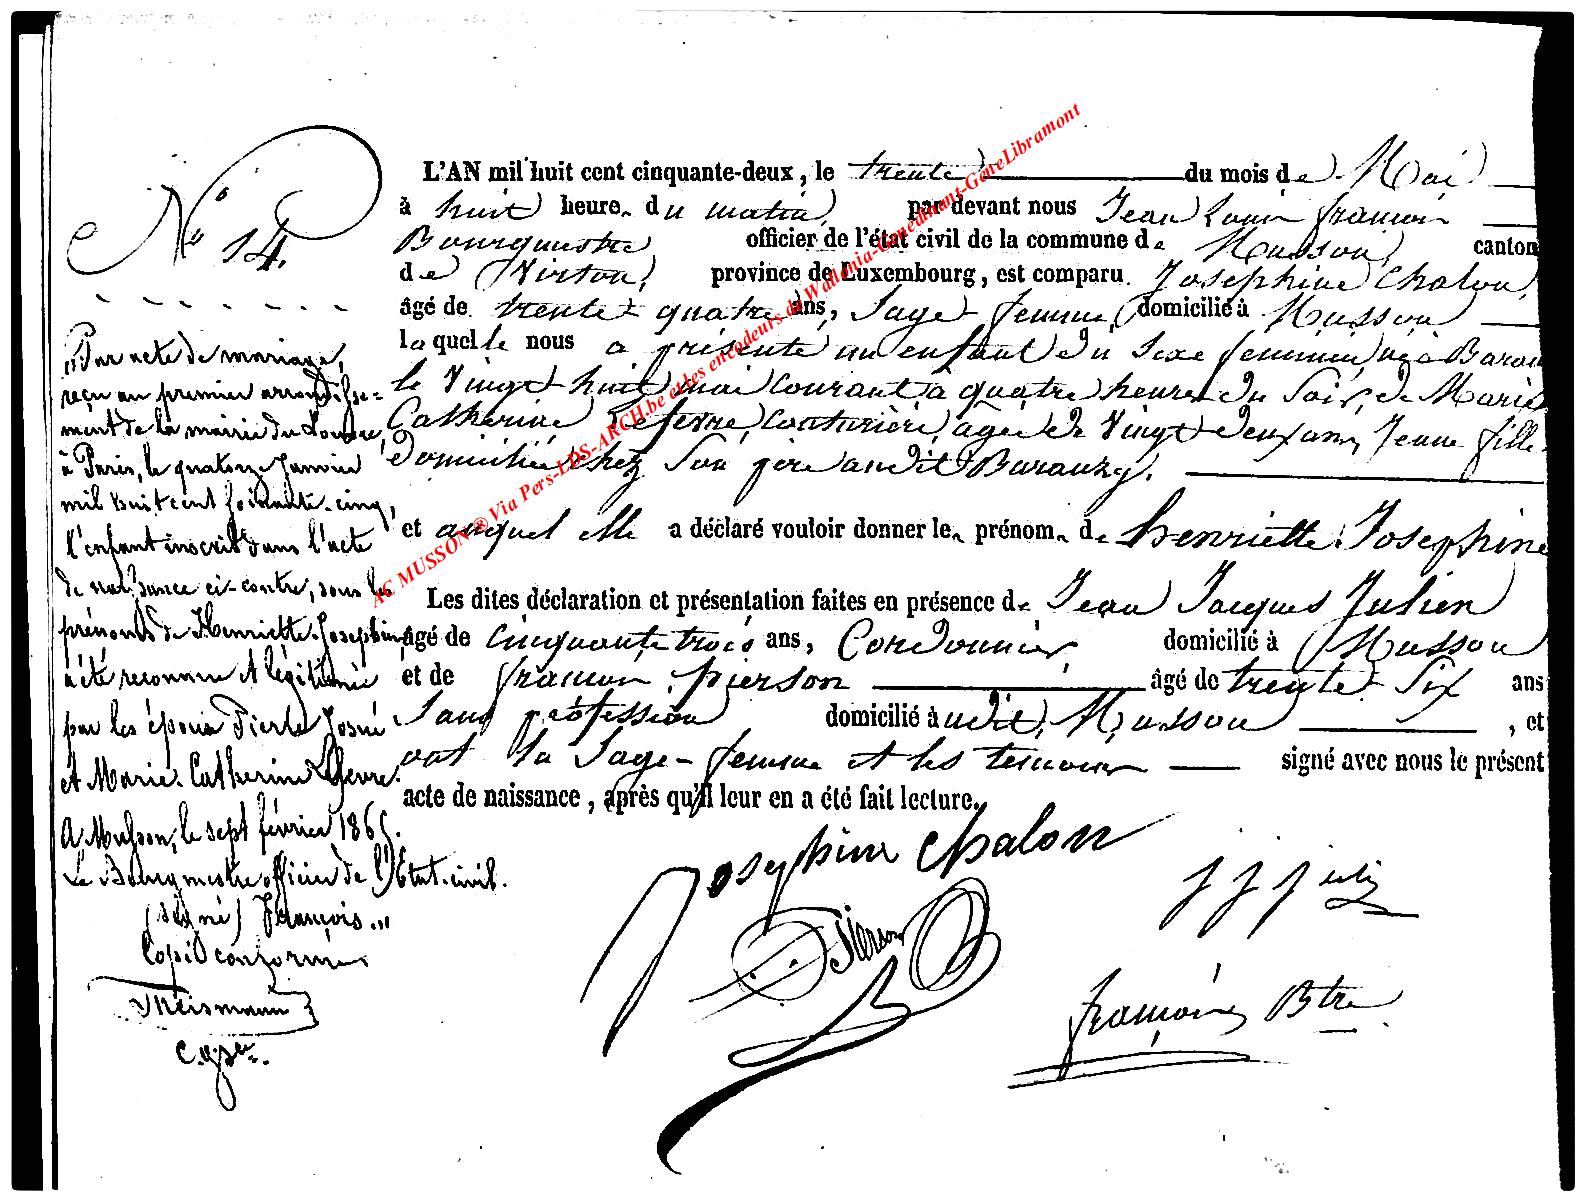 L'AN mil huit cent cinquante-deux, le trente du mois de Mai
à huit heure du matin par devant nous Jean Louis françois
Bourguestre officier de l'état civil de la commune de Musson, canton
de Virton, province de Luxembourg, est comparu Josephine Chalon,
âgé de trente-quatre ans, Sage-femme, domicilié à Musson
laquelle nous a présenté un enfant du Sexe feminin, né à Baran
le Vingt-huit mai courant a quatre heures du Soir, de Marie
Catherine Lefevre, Couturière, agée de Vingt-deux ans, Jeune fille
Domiciliée chez Son père audit Baranzy.
et auquel elle a déclaré vouloir donner le prénom de henriette Josephine
Les dites déclaration et présentation faites en présence de Jean Jacques Julien
âgé de cinquante trois ans, Cordonnier domicilié à Musson
et de françois pierson âgé de trente-Six ans
Sans profession domicilié à udit Musson, et
ont la Sage-femme et les temoins signé avec nous le présent
acte de naissance, après qu'il leur en a été fait lecture.
Josephine chalon
J J Julien
Pierson
françois Btre
No 14.
"Par acte de mariage,
reçu au premier arrondisse-
ment de la mairie du Louvre,
à Paris, le quatorze Janvier
mil huit cent soixante-cinq,
l'enfant inscrit dans l'acte
de naissance ci-contre, sous les
prénoms de Henriette-Josephine,
a été reconnu et légitimé
par les époux Pierre Josué
et Marie-Catherine Lefevre.
A Musson, le sept février 1865.
Le Bourgmestre officier de l'Etat-civil.
(signé) François "
Copie conforme
Theismann
AC MUSSON® Via Pers-LDS-ARCH.be et les encodeurs de Wallonia-Genedinant-GeneLibramont